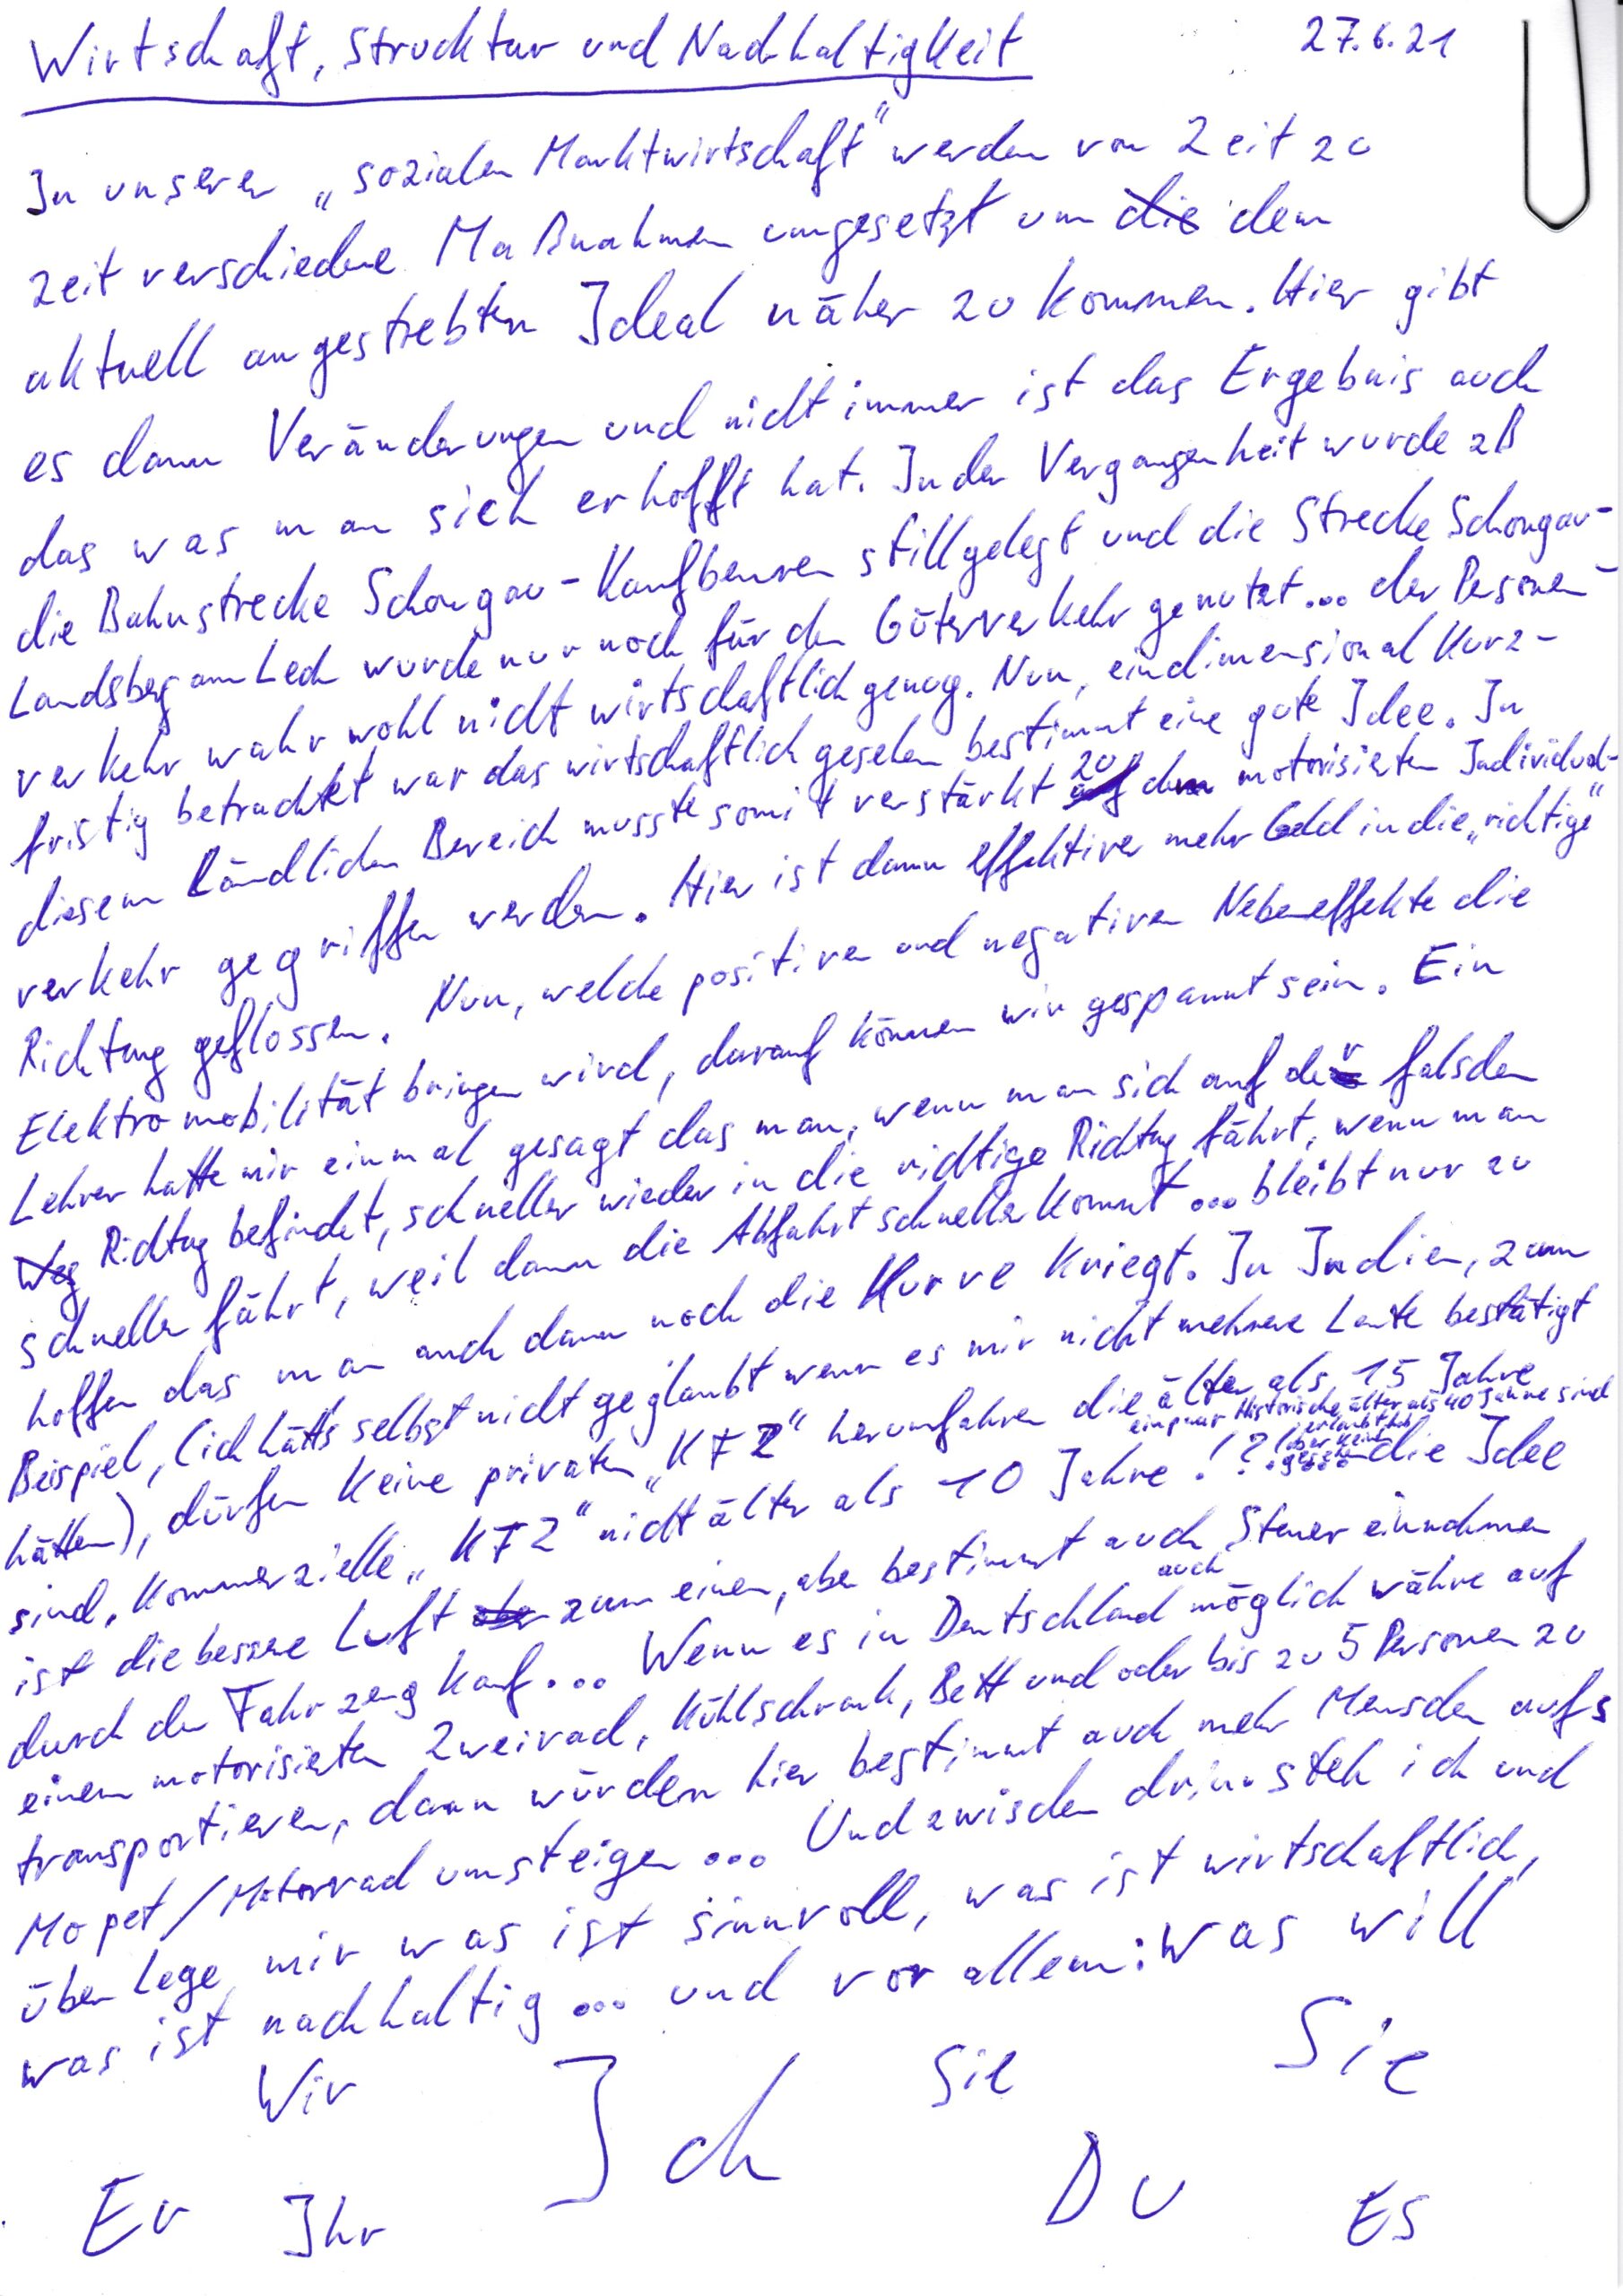 Wirtschaft, Struktur und Nachhaltigkeit 27.6.21
In unserer „sozialen Marktwirtschaft" werden von Zeit zu
Zeit verschiedene Maßnahmen umgesetzt um die dem
aktuell angestrebten Ideal näher zu kommen. Hier gibt
es dann Veränderungen und nicht immer ist das Ergebnis auch
das was man sich erhofft hat. In der Vergangenheit wurde zB
die Bahnstrecke Schongau-Kaufbeuren stillgelegt und die Strecke Schongau-
Landsberg am Lech wurde nur noch für den Güterverkehr genutzt... der Personen-
verkehr wahr wohl nicht wirtschaftlich genug. Nun, eindimensional Kurz-
fristig betrachtet war das wirtschaftlich gesehen bestimmt eine gute Idee. In
diesem Ländlichen Bereich musste somit verstärkt zu dem motorisierten Individual-
verkehr gegriffen werden. Hier ist dann effektiver mehr Geld in die „richtige"
Richtung geflossen. Nun, welche positiven und negativen Nebeneffekte die
Elektromobilität bringen wird, darauf können wir gespannt sein. Ein
Lehrer hatte mir einmal gesagt das man, wenn man sich auf der falschen
Weg Richtung befindet, schneller wieder in die richtige Richtung fährt, wenn man
schneller fährt, weil dann die Abfahrt schneller kommt... bleibt nur zu
hoffen das man auch dann noch die Kurve kriegt. In Indien, zum
Beispiel, (ich hätts selbst nicht geglaubt wenn es mir nicht mehrere Leute bestätigt
hätten), dürfen keine privaten „KFZ" herumfahren die älter als 15 Jahre
sind, kommerzielle „KFZ" nicht älter als 10 Jahre!?! ein paar Historische älter als 40 Jahre sind erlaubt aber keine gesehen die Idee
ist die bessere Luft aber zum einen, aber bestimmt auch Steuereinnahmen
durch den Fahrzeugkauf... Wenn es in Deutschland auch möglich währe auf
einem motorisierten Zweirad, Kühlschrank, Bett und oder bis zu 5 Personen zu
transportieren, dann würden hier bestimmt auch mehr Menschen aufs
Mopet/Motorrad umsteigen... Und zwischen drin steh ich und
überlege mir was ist sinnvoll, was ist wirtschaftlich,
was ist nachhaltig... und vor allem: was will
Wir Ich Sie Sie
Er Ihr Du Es